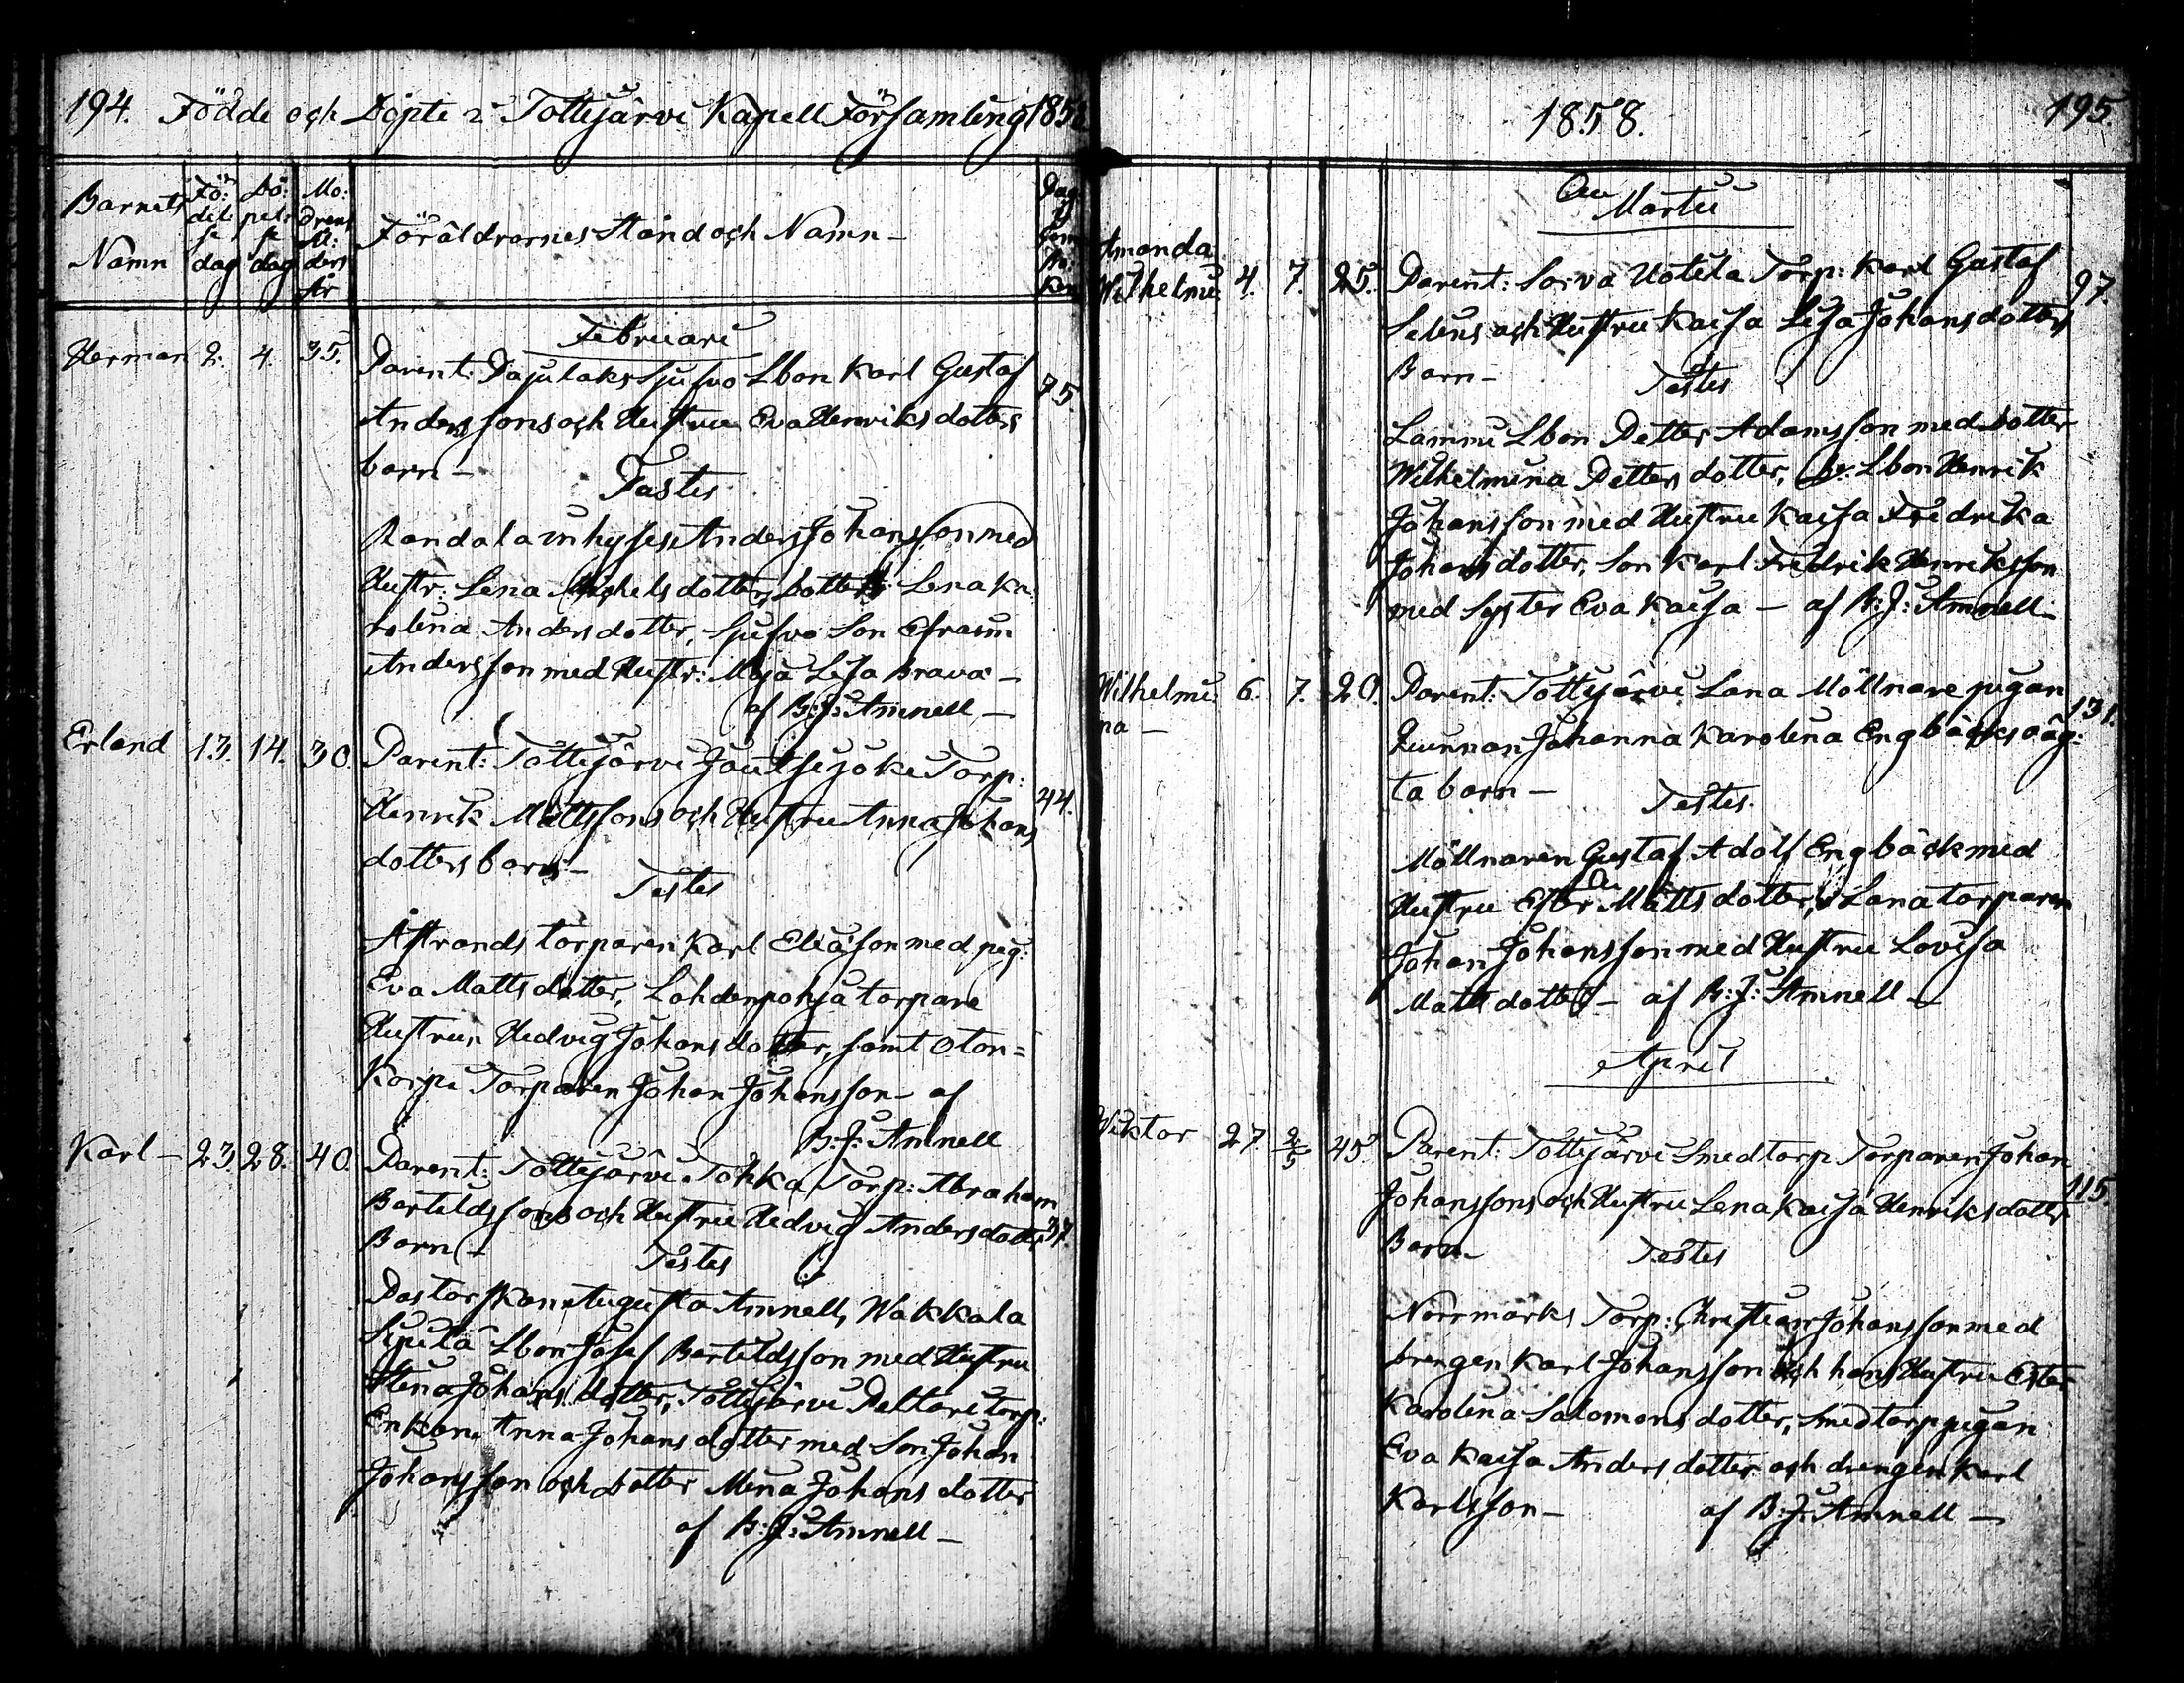 194. Födde och Döpte i Tottijärvi Kapell Församling 1858
Barnets Namn
Fö:delse dag
Dö:pelse dag
Mo:drens Ål:ders År
Föräldrarnes Stånd och Namn -
Februari
Herman 2. 4. 35. Parent: Pajulaks Sjufvo Lbon Karl Gustaf 75.
Anderssons och Hustru Eva Henriksdotters
barn -
Testes
Randala inhyses Anders Johansson med
Hustr: Lena Michelsdotter, dotter Lena Ka:
rolina Andersdotter, Sjufvo Son Efraim
Andersson med Hustr: Maja Lisa Brava -
af B: J: Amnell -
Erland 13. 14. 30. Parent: Tottijärvi Joutsijoki Torp: 44.
Henrik Mattssons och Hustru Anna Johans
dotters barn -
Testes
Åstrands torparen Karl Eliasson med pig:
Eva Mattsdotter, Lahdenpohja torpare
Hustrun Hedvig Johansdotter, samt Oton=
korpi Torparen Johan Johansson - af
B: J: Amnell
Karl - 23. 28. 40. Parent: Tottijärvi Tohka Torp: Abraham
Bertildssons och Hustru Hedvig Andersdotters 37.
Barn -
Testes
Pastorskan Augusta Amnell, Wakkala
Sipilä Lbon Josef Bertildsson med Hustru
Stina Johansdotter, Tottijärvi Pelttari torp:
Enkan Anna Johansdotter med Son Johan
Johansson och dotter Mina Johansdotter
af B: J: Amnell -
1858. 195.
Martii
Amanda
Wilhelmi: 4. 7. 25. Parent: Sorva Uotila Torp: Karl Gustaf 97.
Selins och Hustru Kaisa Lisa Johansdotters
Barn -
Testes
Lammi Lbon Petter Adamsson med dotter
Wilhelmina Pettersdotter, Lbon Henrik
Johansson med Hustru Kaisa Fredrika
Johansdotter, Son Karl Fredrik Henriksson
med Syster Eva Kaisa - af B: J: Amnell -
Wilhelmi: 6. 7. 20. Parent: Tottijärvi Lana Möllnare pigan 131.
na -
qvinnan Johanna Karolina Engbäcks oäg:
ta barn -
Testes
Möllnaren Gustaf Adolf Engbäck med
Hustru Ester Mattsdotter, Lana torparen
Johan Johansson med Hustru Lovisa
Mattsdotter - af B: J: Amnell -
April
Wiktor 27. 2/5 45. Parent: Tottijärvi Smedtorp Torparen Johan 115.
Johanssons och Hustru Lena Kaisa Henriksdotters
Barn -
Testes
Norrmarks Torp: Christian Johansson med
drengen Karl Johansson och hans Hustru Ester
Karolina Salomonsdotter, Smedtorp pigan
Eva Kaisa Andersdotter och drengen Karl
Karlsson - af B: J: Amnell -